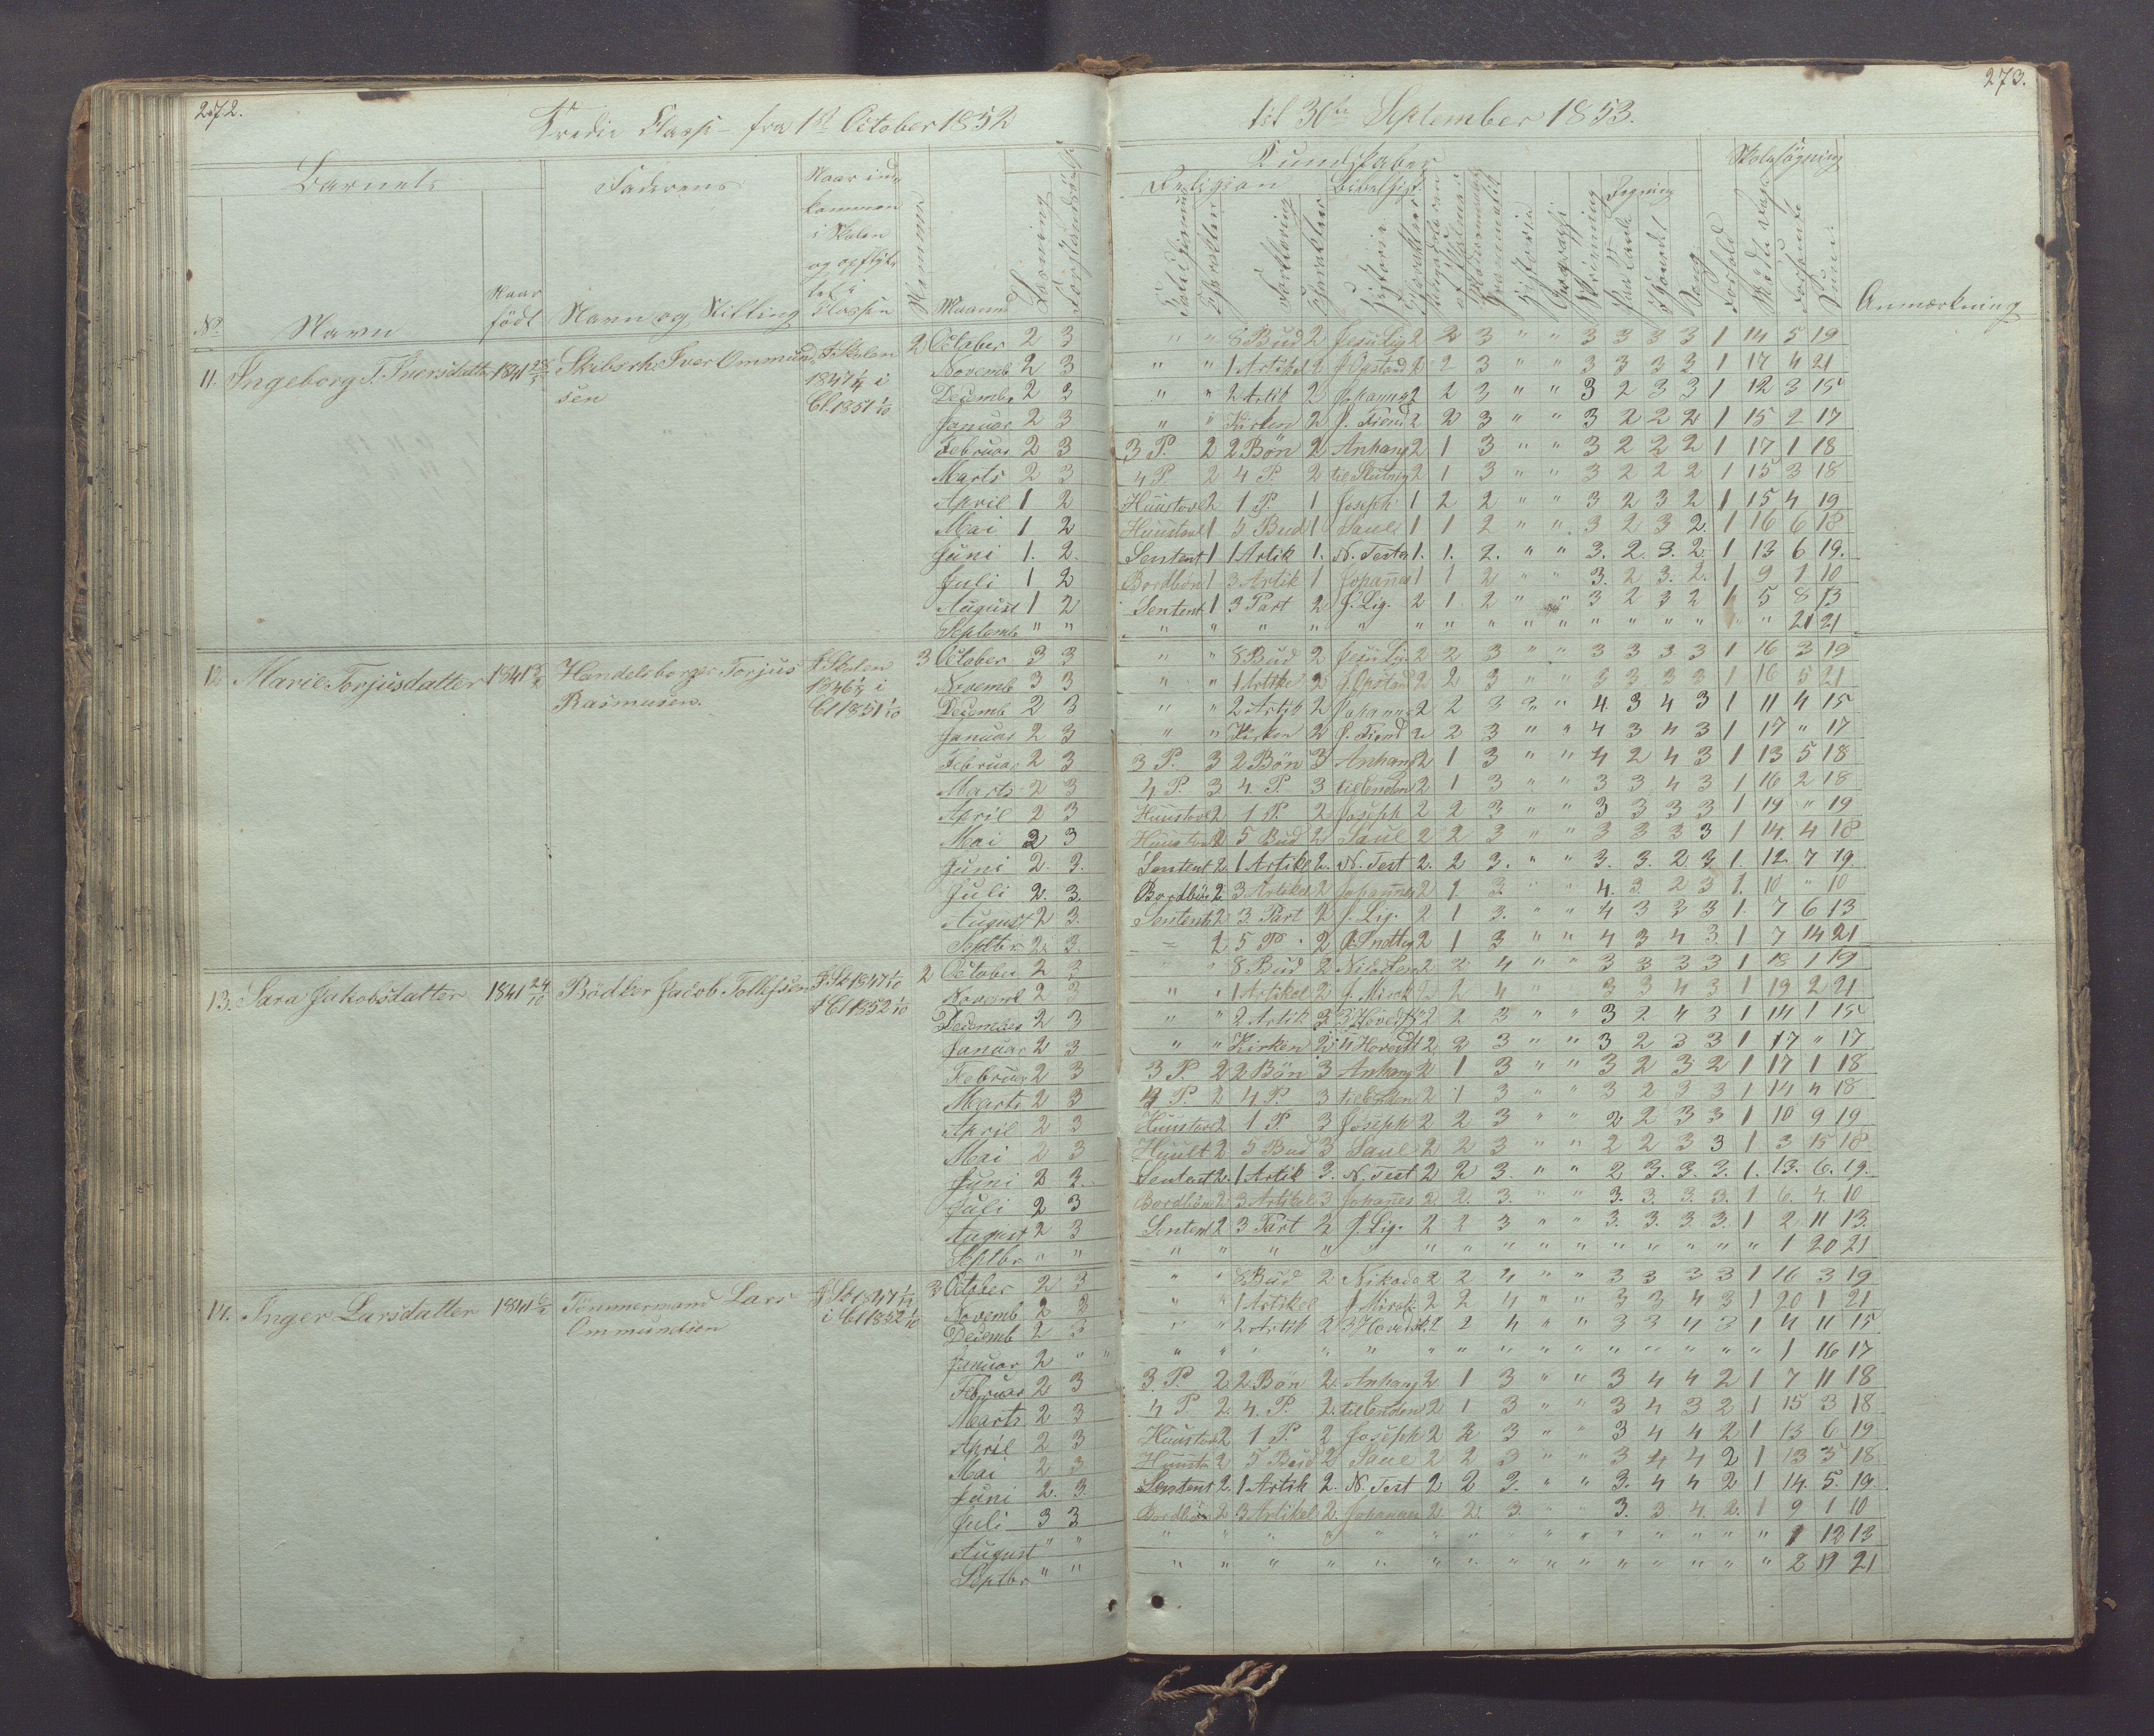 272.
Tredie Classe fra 1st October 1852
Barnets
Faderens
Naar ind-
kommen
i Skolen
og opflyt-
tet i
Classen
Nummer
Læsning
No
Navn
Naar
födt
Navn og Stilling
Maaned
11. Ingeborg T. Iversdatter 1841 Skibsrh. Iver Ommund- I Skolen 2
sen 1847 i
Cl. 1851 1/10
October 2 3
Novemb 2 3
Decembr 2 3
Januar 2 3
Februar 2 3
Marts 2 3
April 1 2
Mai 1 2
Juni 1. 2.
Juli 1 2
August 1 2
Septemb " "
12 Marie Torjusdatter 1841 Handelsborger Torjus I Skolen 3
Rasmusen. 1846 i
Cl 1851 1/10
October 3 3
Novemb 3 3
Decemb 2 3
Januar 2 3
Februar 2 3
Marts 2 3
April 2 3
Mai 2 3
Juni 2. 3.
Juli 2. 3.
August 2 3.
Septbr 2. 3.
13. Sara Jakobsdatter 1841 24/10 Bödker Jacob Tollefsen I Sk 1847 1/10 2
I Cl 1852 1/10
October 2 3
Novemb 2 3
December 2 3
Januar 2 3
Februar 2 3
Marts 2 3
April 2 3
Mai 2 3
Juni 2 2.
Juli 2 3
August 2 3
Septbr " "
14. Inger Larsdatter 1841 Tömmermand Lars I Sk 1847 3
Ommundsen i Cl 1852 1/10
October 2 3
Novemb 2 3
Decemb 2 3
Januar 2 " "
Februar 2 3
Marts 2 3
April 2 3
Mai 2 3
Juni 2. 3.
Juli 3 3
August " "
Septbr " "
273.
til 30te September 1853.
Kundskaber
Skolesögning
Religion
Bibelhist.
Tegning
Historie
Geographi
Skrivning
Sang
Forhold
Anmærkning
" " 8 Bud 2 Jesu Lig 2 2 3 " " 3 3 3 3 1 14 5 19
" " 1 Artikel 2 J. Opstand 2 2 3 " " 3 3 3 3 1 17 4 21
" " 2 Artik 2 Johannes 2 2 3 " " 3 2 3 3 1 12 3 15
" " Kirken 2 J. Fiend 2 2 3 " " 3 2 2 2 1 15 2 17
3 P. 2 2 Bön 2 Anhang 2 1 3 " " 3 2 2 2 1 17 1 18
4 P. 2 4 P. 2 til Slutning 2 1 3 " " 3 2 2 2 1 15 3 18
Huustavl 2 1 P. 1 Joseph 1 2 2 " " 3 2 3 2 1 15 4 19
Huustavl 1 5 Bud 1 Saul 1 1 2 " " 3 2 3 2. 1 16 6 18
Sentent 1 1 Artik 1. N. Testa 1. 1. 2. " " 3. 2. 3. 2. 1 13 6 19.
Bordbön 1 3 Artik 1 Johannes 1 1 2 " " 3. 2 3. 2. 1 9 1 10
Sentent 1 3 Part 2 J. Lig. 2 1 2 " " 3 2 3 2 1 5 8 13
" " " " " " " " " " " " " " " " 21 21
" " 8 Bud 2 Jesu Lig 2 2 3 " " 3 3 3 3 1 16 3 19
" " 1 Artikel 2 J. Opstand 2 2 3 " " 3 3 3 3 1 16 5 21
" " 2 Artik 2 Johannes 2 2 3 " " 4 3 4 3 1 11 4 15
" " Kirken 2 J. Fiend 2 2 3 " " 4 3 4 3 1 17 " 17
3 P. 3 2 Bön 3 Anhang 2 1 3 " " 4 2 4 3 1 13 5 18
4 P. 3. 4. P. 3 til Enden 2 1 3 " " 3 3 4 3 1 16 2 18
Huustavl 2 1 P. 2 Joseph 2 2 3 " " 3 3 3 3 1 19 " 19
Huustavl 2 5 Bud 2 Saul 2 2 3 " " 3 3 3 3 1 14. 4 18
Sentent 2. 1 Artikel 2. N. Test 2. 2 3. " " 3. 3. 2 3 1. 12. 7 19.
Bordbön 2 3 Artikel 2 Johannes 2 1 3. " " 4. 3. 2 3 1. 10 " 10
Sentents 2 3. Part 2 J. Lig. 2 1 3. " " 4 3 3 3 1. 7 6 13
" 2 5 P. 2 J. Indtog 2 1 3 " " 4 3 4 3. 1 7 14 21
" " 8 Bud 2 Nicodem 2 2 4 " " 3 3 3 3 1 18 1 19
" " 1 Artikel 2 J. Mirak 2 2 4 " " 3 3 4 3 1 19 2 21
" " 2 Artik 3 3 Hovedst 2 2 3 " " 3 2 4 3 1 14 1 15
" " Kirken 2 4 Hovedst 2 2 3 " " 3 2 3 3 1 17 " 17
3 P. 2 2 Bön 3 Anhang 2 1 3 " " 3 2 3 2 1 17 1 18
4 P. 2 4 P. 3 til Enden 2 1 3 " " 3 2 3 3 1 14 4 18
Huustavl 2 1 P. 3 Joseph 2 2 3 " " 2 2 3 3 1 10 9 19
Huult 2 5 Bud 3 Saul 2 2 3 " " 2 2 3 3 1 3 15 18
Sentent 2. 1 Artik 3. N. Test 2 2 3. " " 2 3. 3. 3. 1. 13. 6. 19.
Bordbön 2 3 Artikel 3 Johannes 2 2. 3. " " 3. 3. 3. 3. 1 6. 4. 10
Sentent 2 3 Part 2 J. Lig. 2 2 3 " " 3. 3. 3 3. 1 2 11 13.
" " " " " " " " " " " " " " " 1 20 21
" " 8 Bud 2 Nikode 2 2 4 " " 3 3 3 3 1 16 3 19
" " 1 Artikel J Mirak 2 2 4 " " 3 3 4 3 1 20 1 21
" " 2 Artik 2 3 Hovedst. 2 2 4 " " 3 3 4 3 1 4 11 15
" " " " " " " " " " " " " " " 1 16 17
3. P. 2. 2 Bön 2. Anhang 2 1 3 " " 3 4 4 2 1 7 11 18
4 P. 2. 4. P. 2. til Enden 2 1 3 " " 3 4 3 2 1 15 3 18
Huustavl 2 1 P. 2 Joseph 2 2 3 " " 3 4 4 2 1 13 6 19
Huusta 2 5 Bud 2 Saul 2 2 3 " " 3 4 4 2 1 13 5 18
Sentent 2. 1 Artik 2. N. Test 2 2 3. " " 3. 4 4 2 1 14. 5. 19
Bordbön 2 3 Artikel 2. Johannes 2. 2. 3. " " 3. 3 4. 2. 1 9 1 10
" " " " " " " " " " " " " " " 1 12 13
" " " " " " " " " " " " " " " 2 19 21